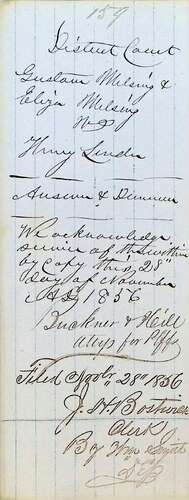 159
District Court
Gustav Melsing &
Eliza Melsing
vs
Henry Linder
Answer & Demurrer
We acknowledge
service of the within
by copy this 28"
day of November
AD 1856
Buckner & Hill
attys for Plffs
Filed Novbr 28" 1856
J. H.
Clerk
By Wm Smith